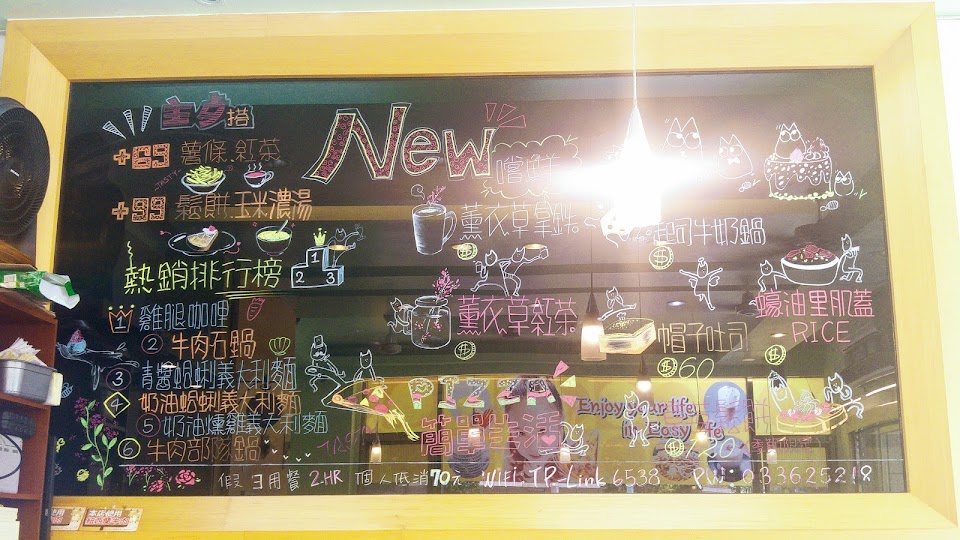 主食搭
+69 薯條.紅茶
TASTY
+99 鬆餅.玉米濃湯
熱銷排行榜
1
2 3
1 雞腿咖哩
② 牛肉石鍋
③ 青醬蛤蜊義大利麵
4 奶油蛤蜊義大利麵
⑤ 奶油燻雞義大利麵
⑥ 牛肉部隊鍋
New
嚐鮮
薰衣草拿鐵
$
薰衣草紅茶
$
起司牛奶鍋
$
蠔油里肌蓋
RICE
$
帽子吐司
$60
PIZZA
簡單生活
Enjoy your life
in Easy life
$120
假日用餐 2HR 個人低消70元 WiFi:TP-Link 6538 PW: 033625218
使用
本店使用